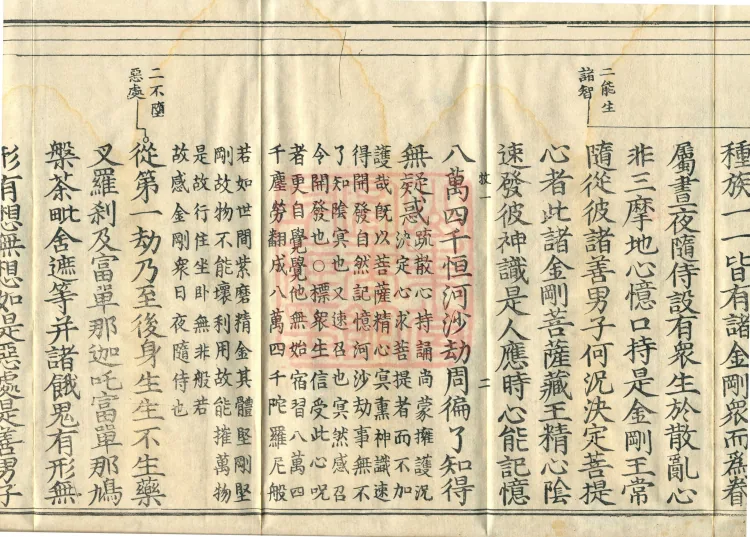 種族一一皆有諸金剛衆而爲眷
屬晝夜隨侍設有衆生於散亂心
非三摩地心憶口持是金剛王常
隨從彼諸善男子何況決定菩提
二能生
諸智
心者此諸金剛菩薩藏王精心陰
速發彼神識是人應時心能記憶
二
八萬四千恒河沙劫周徧了知得
無疑惑
疏散心持誦尚蒙擁護況
決定心求菩提者而不加
護哉既以菩薩精心冥熏神識速
得開發自然記憶河沙劫事無不
了知陰冥也又速召也冥然感召
令開發也○標衆生信受此心呪
者更自覺覺他無始宿習八萬四
千塵勞翻成八萬四千陀羅尼般
若如世間紫磨精金其體堅剛堅
剛故物不能壞利用故能摧萬物
是故行住坐卧無非般若
故感金剛衆日夜隨侍也
二不墮
惡處
從第一劫乃至後身生生不生藥
叉羅刹及富單那迦吒富單那鳩
槃茶毗舍遮等并諸餓鬼有形無
形有想無想如是惡處是善男子